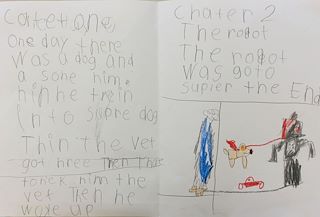 One day there
was a dog and
a sone him.
hinhe trein
into supre dog
Thin the vet
got hree then that
tonck him the
vet Then he
woke up
Chater 2
The robot
The robot
was goto
supier the End